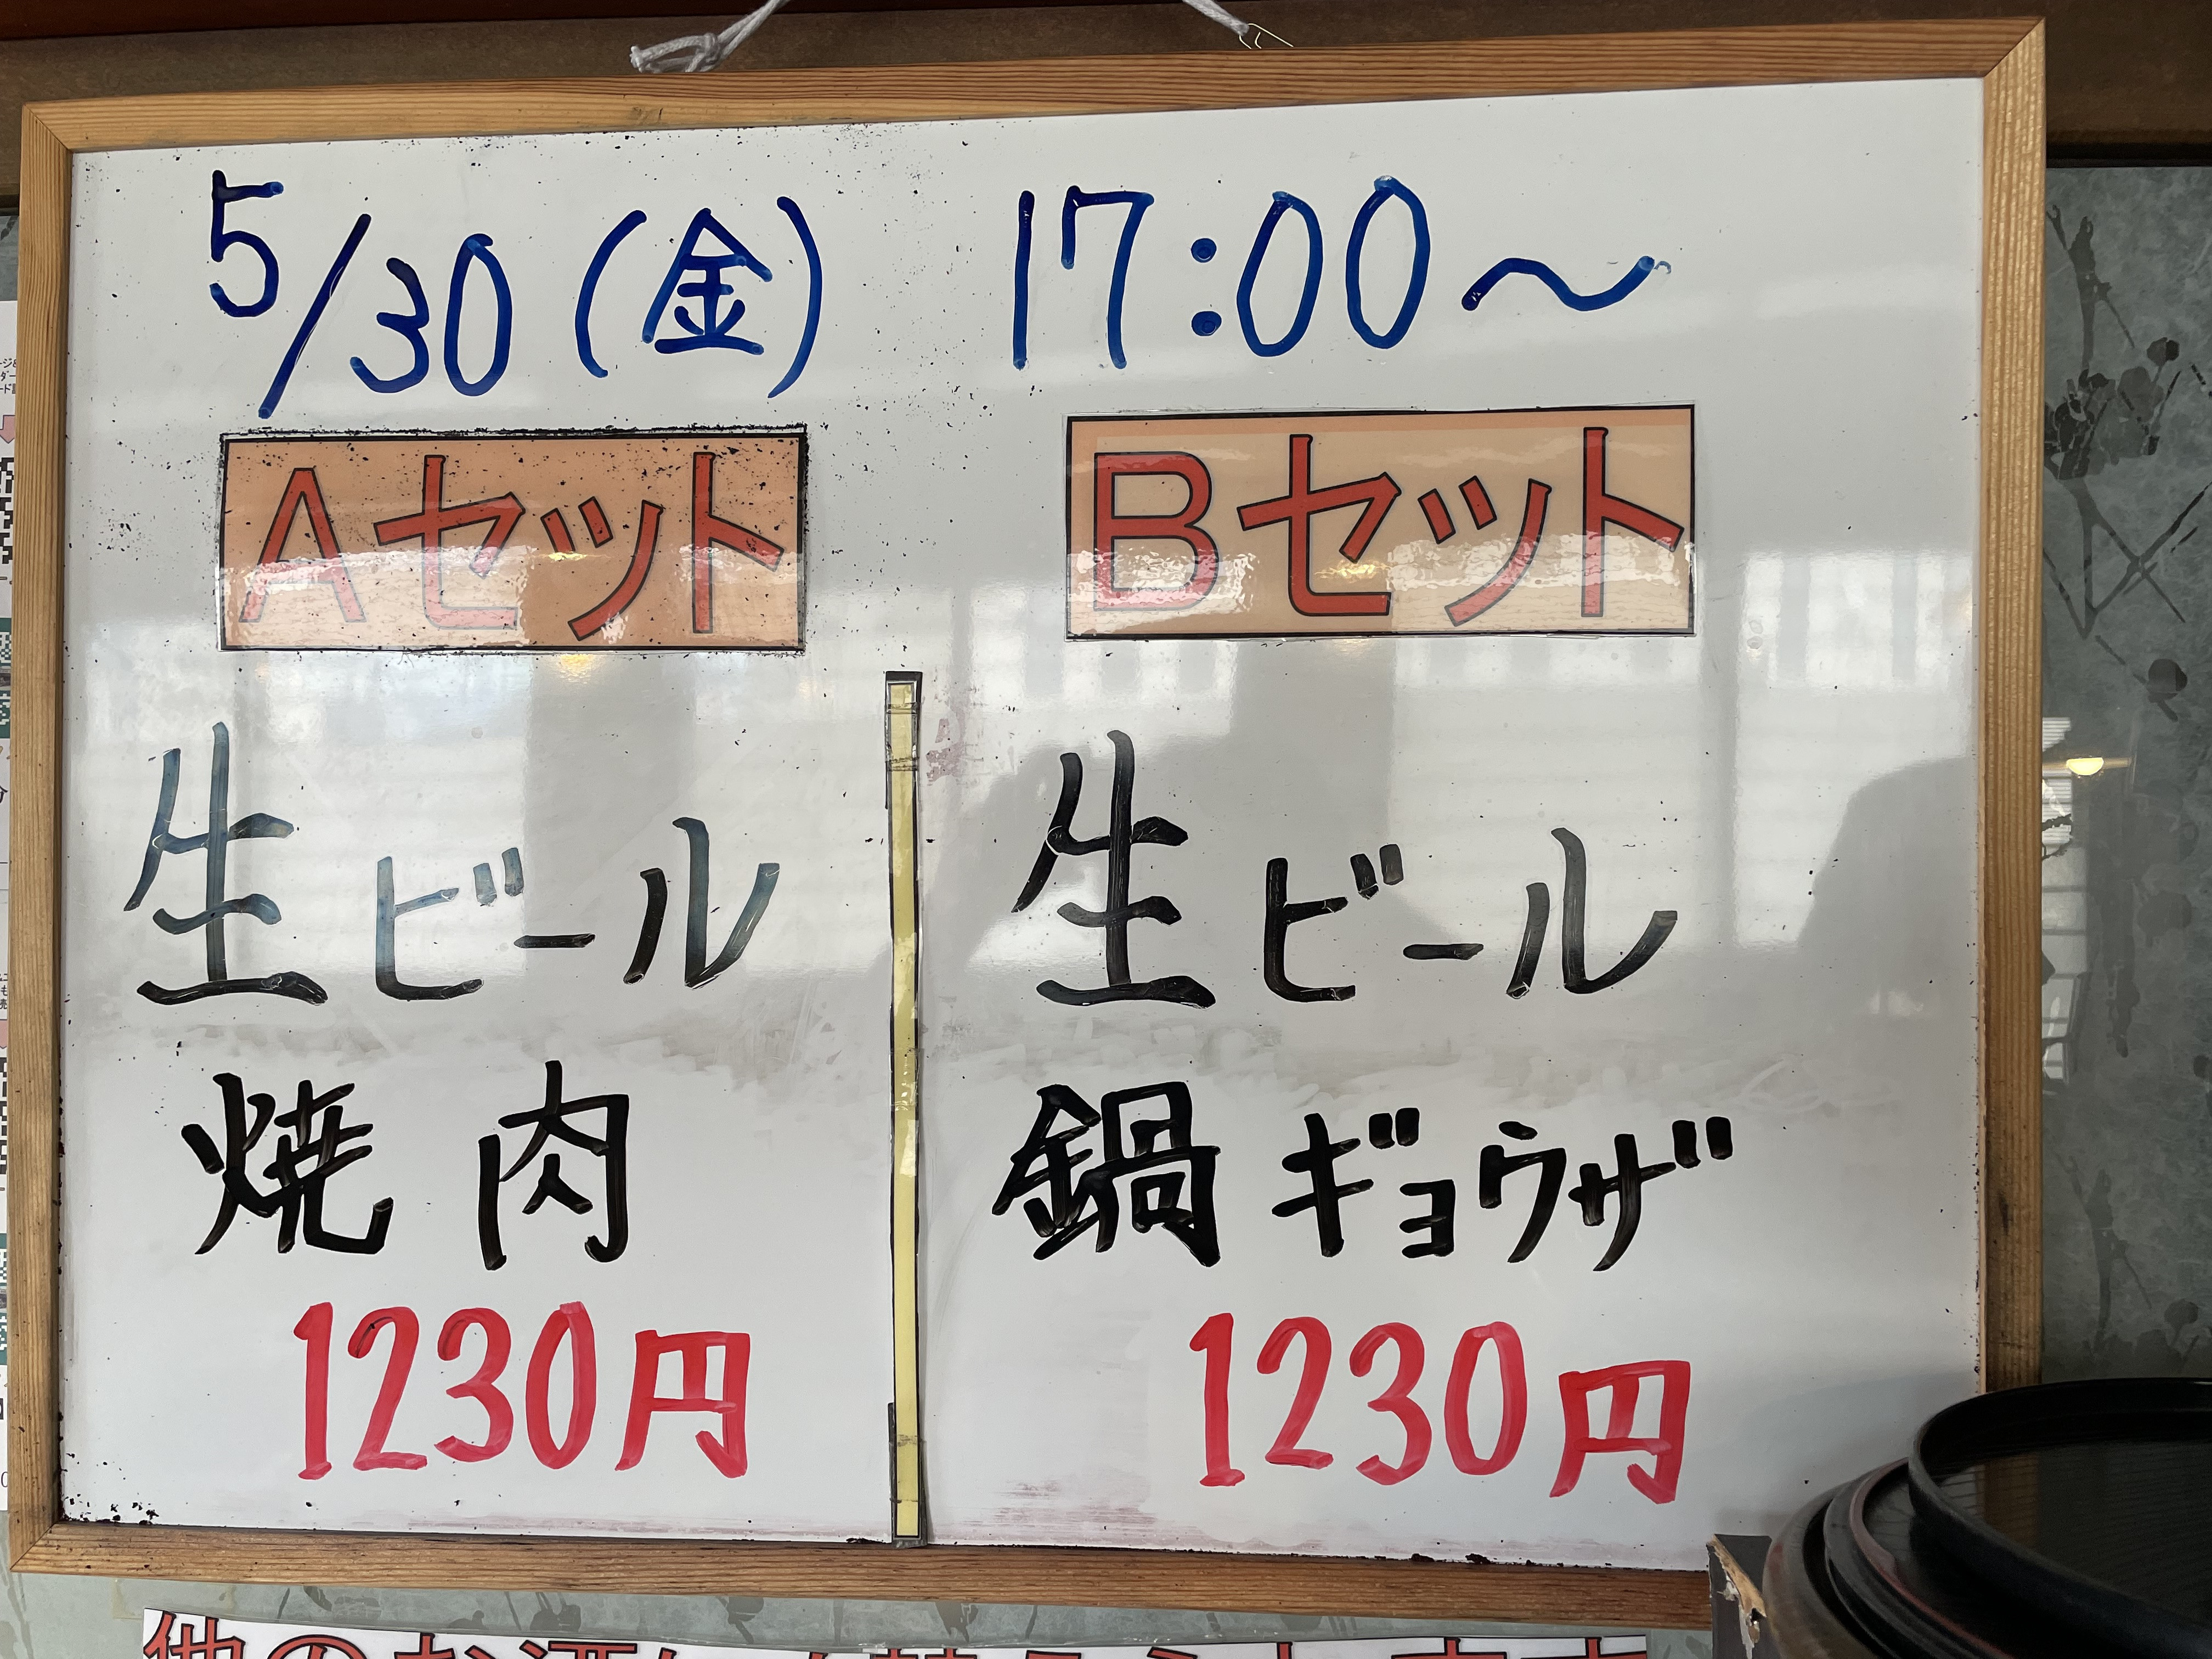 5/30(金) 17:00～
Aセット
Bセット
生ビール
焼肉
1230円
生ビール
鍋ギョウザ
1230円